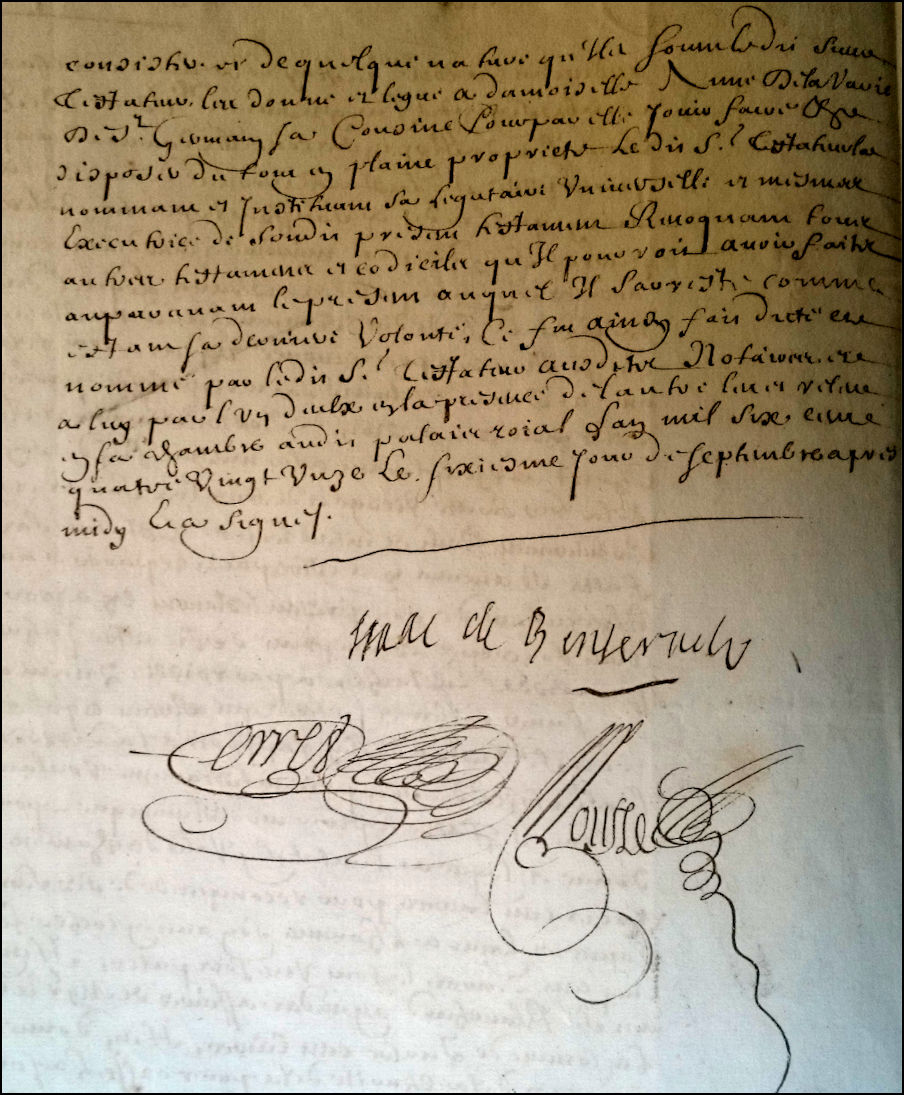 consister et de quelque nature qu'Ils soient ledit sieur
Testateur les donne et legue a damoiselle Anne Dela Vacie
De St. Germain sa Cousine Pour par elle Jouir faire &
disposer du tout en plaine propriete Ledit Sr. Testateur la
nommant et Instituant sa Legataire Universelle et mesme
Executrice de Sondit present testament Revoquant tous
autres testamens et codiciles qu'Il pouvoit avoir faits
auparavant le present auquel Il S'arreste comme
estant sa derniere Volonté, Ce fut ainsy fait dicté et
nommé par ledit Sr. Testateur ausdits Notaires et
a luy par l'un d'eulx en la presence de l'autre leu et releu
en sa chambre audit palais roial L'an mil six cens
quatre Vingt Unze Le sixiesme Jour de septembre apres
midy Et a signé.
Isaac de Benserade
Torres
Mousle